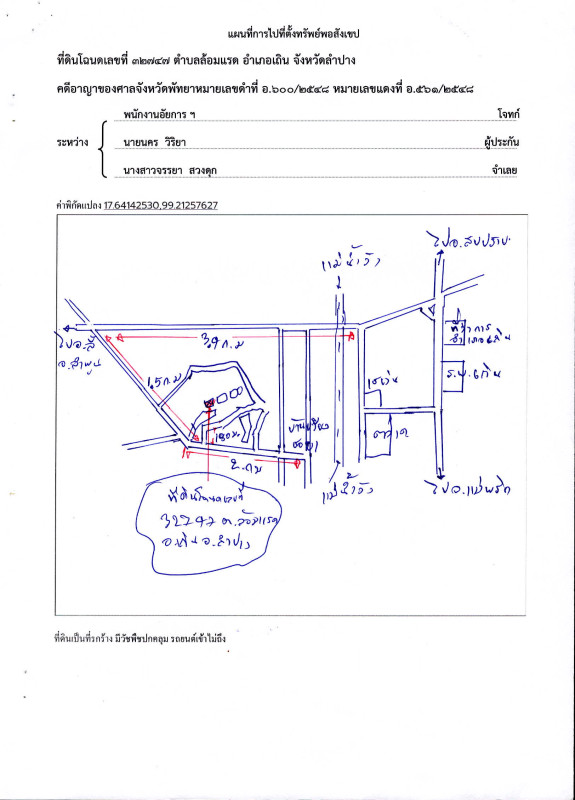 แผนที่การไปที่ตั้งทรัพย์พอสังเขป
ที่ดินโฉนดเลขที่ ๓๒๗๔๗ ตำบลล้อมแรด อำเภอเถิน จังหวัดลำปาง
คดีอาญาของศาลจังหวัดพัทยาหมายเลขดำที่ อ.๖๐๐/๒๕๔๘ หมายเลขแดงที่ อ.๕๖๑/๒๕๔๘
พนักงานอัยการ ฯ โจทก์
ระหว่าง นายนคร วิริยา ผู้ประกัน
นางสาวจรรยา สวงดุก จำเลย
ค่าพิกัดแปลง 17.64142530,99.21257627
ไปอ.สบปราบ
แม่น้ำวัง
ที่ว่าการ
อำเภอเถิน
3.9 ก.ม
ไปอ.ลี้
จ.ลำพูน
ร.พ.เถิน
1.5 ก.ม
เซเว่น
180 ม.
บ้านเวียง
ตลาด
2 กม
แม่น้ำวัง
ไปอ.แม่พริก
ที่ดินโฉนดเลขที่
32747 ต.ล้อมแรด
อ.เถิน จ.ลำปาง
ที่ดินเป็นที่รกร้าง มีวัชพืชปกคลุม รถยนต์เข้าไม่ถึง